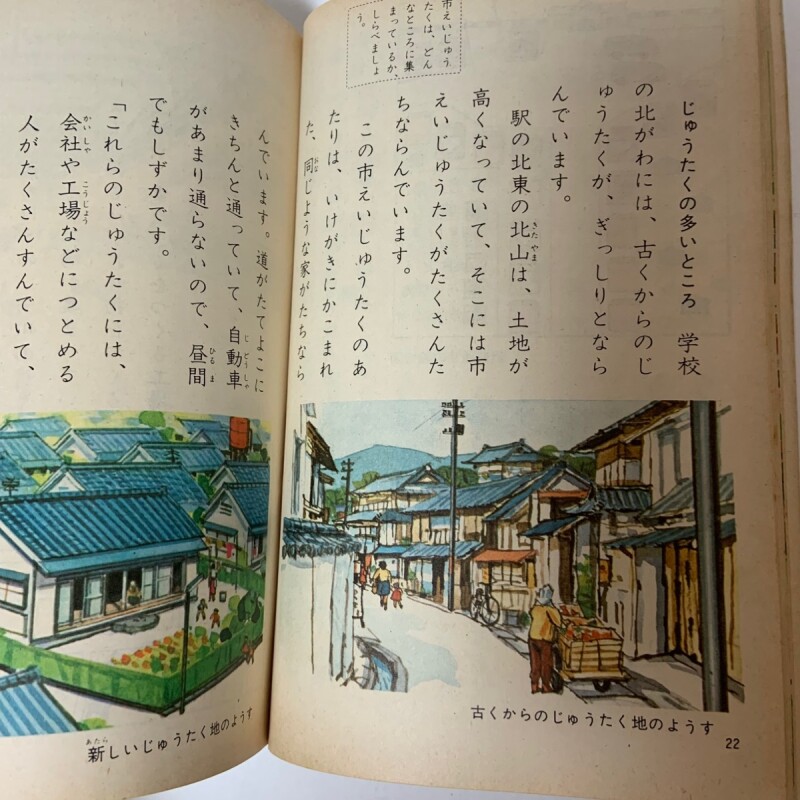 市えいじゅう
たくは、どん
なところに集
まっているか、
しらべましょ
う。
じゅうたくの多いところ　学校
の北がわには、古くからのじ
ゅうたくが、ぎっしりとなら
んでいます。
駅の北東の北山は、土地が
高くなっていて、そこには市
えいじゅうたくがたくさんた
ちならんでいます。
この市えいじゅうたくのあ
たりは、いけがきにかこまれ
た、同じような家がたちなら
古くからのじゅうたく地のようす
22
んでいます。道がたてよこに
きちんと通っていて、自動車
があまり通らないので、昼間
でもしずかです。
「これらのじゅうたくには、
会社や工場などにつとめる
人がたくさんすんでいて、
新しいじゅうたく地のようす